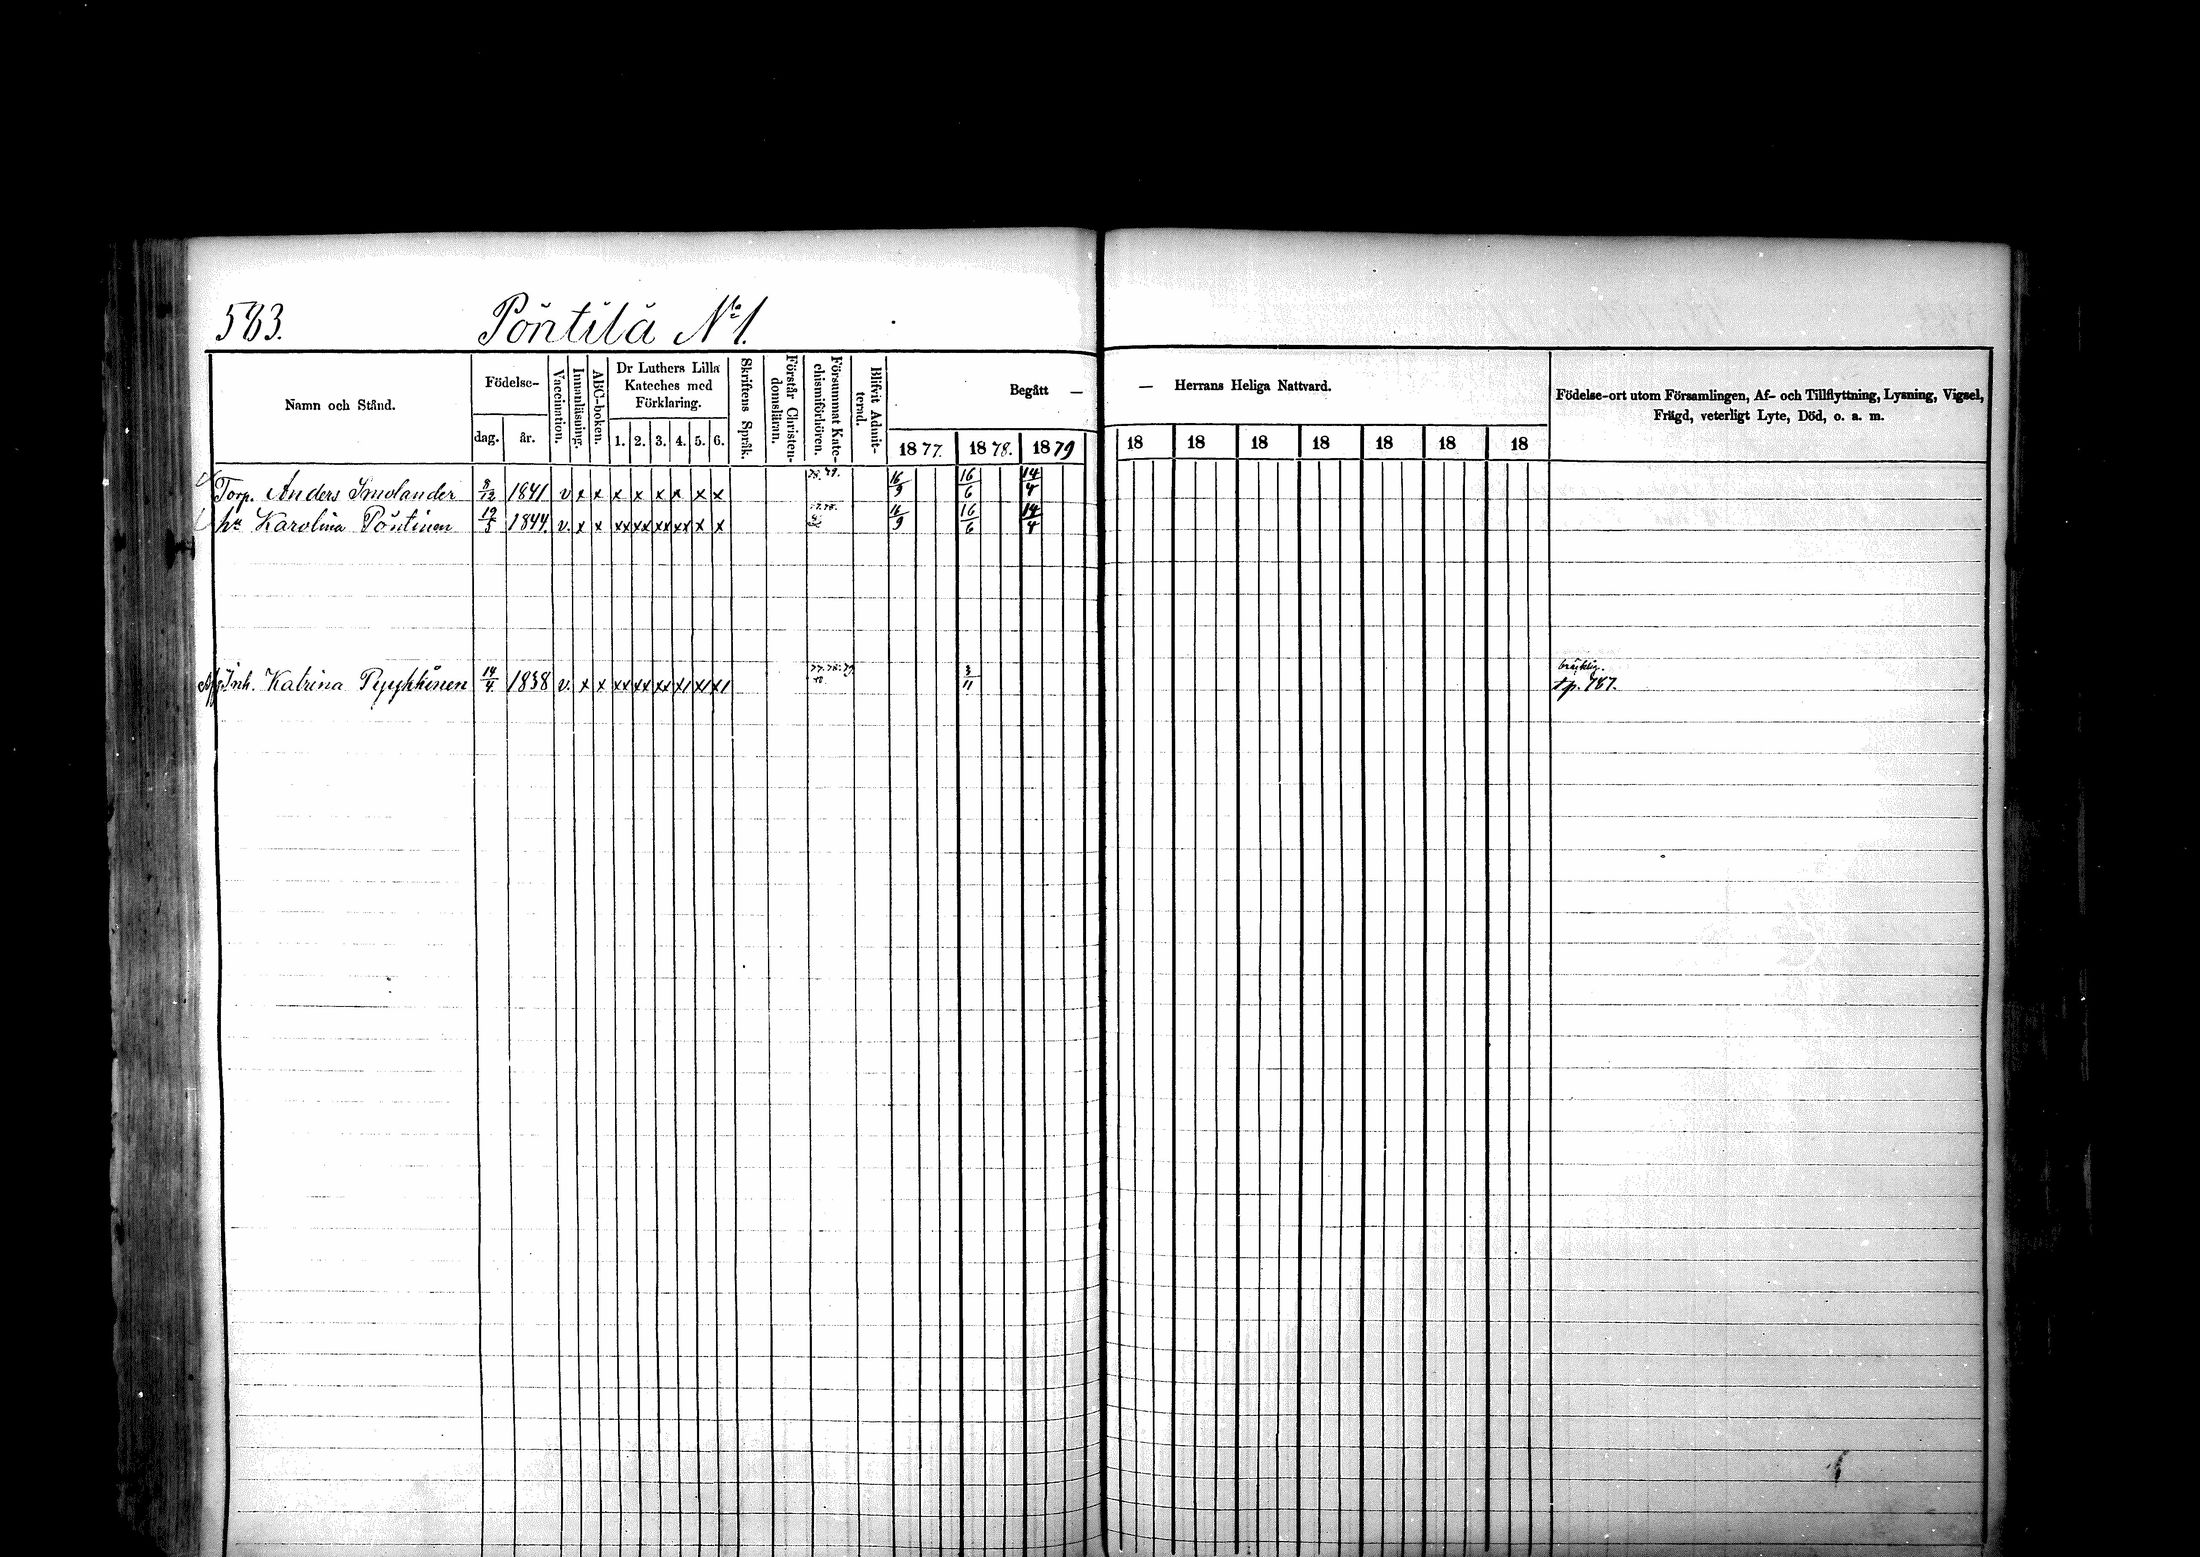 583. Pöntilä No 1.
Namn och Stånd. Födelse- dag. år. Vaccination. Innanläsning. ABC-boken. Dr Luthers Lilla Kateches med Förklaring. 1. 2. 3. 4. 5. 6. Skriftens Språk. Förstår Christendomsläran. Försummat Katechismiförhören. Blifvit Admitterad. Begått — — Herrans Heliga Nattvard. Födelse-ort utom Församlingen, Af- och Tillflyttning, Lysning, Vigsel, Frägd, veterligt Lyte, Död, o. a. m.
1877. 1878. 1879 18 18 18 18 18 18 18
Torp. Anders Smolander 8/12 1841 v x x x x x x x x 78. 79. 16/9 16/6 14/4
hu Karolina Pöntinen 19/3 1844. v. x x xx xx xx xx x x 16/9 16/6 14/4
Inh. Katrina Pyykkönen 14/4 1838 v. x x xx xx xx x/ x/ x/ 77. 78. 79. 3/11 bräcklig. tp. 787.